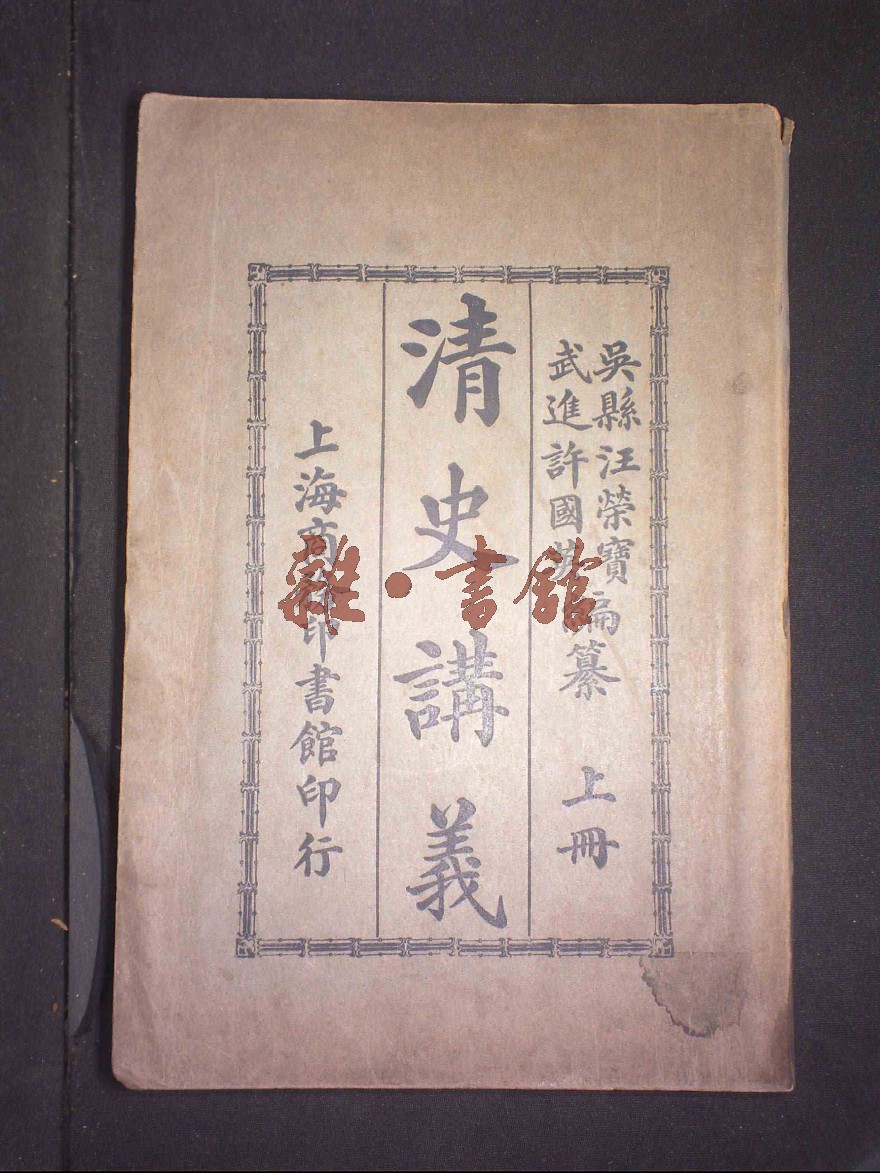 吳縣汪榮寶
武進許國英
編纂
上冊
清史講義
上海商務印書館印行
雜·書館